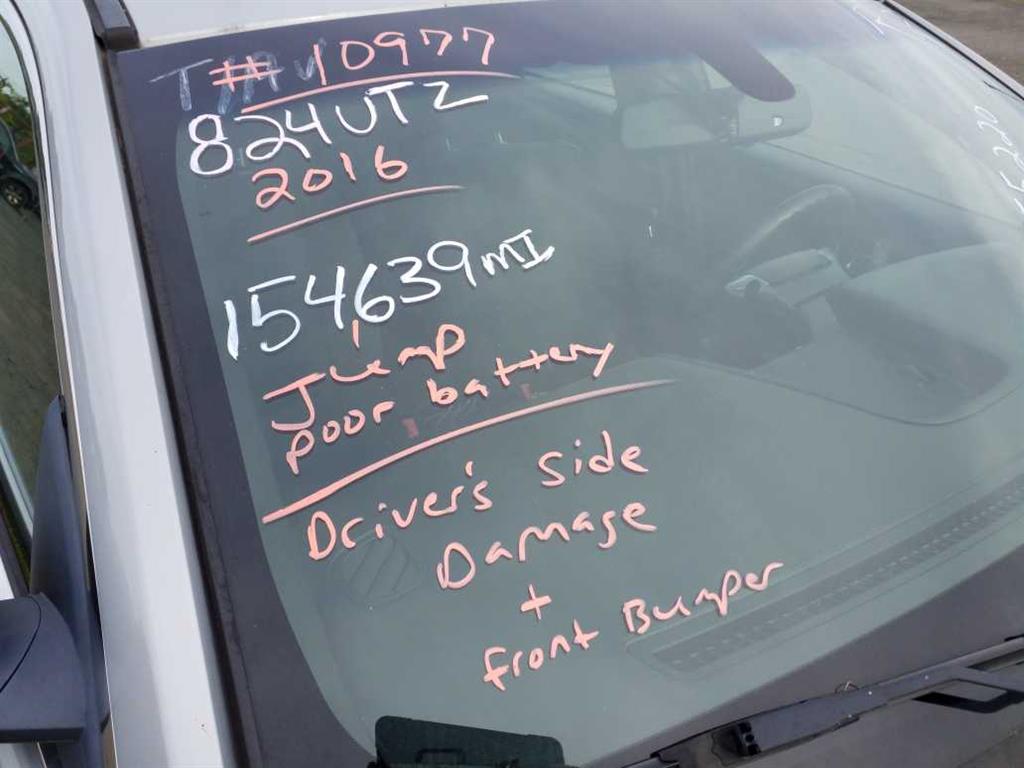 #10977
824UTZ
2016
154639mI
Jump
poor battery
Driver's side
Damage
+
front Bumper
5220